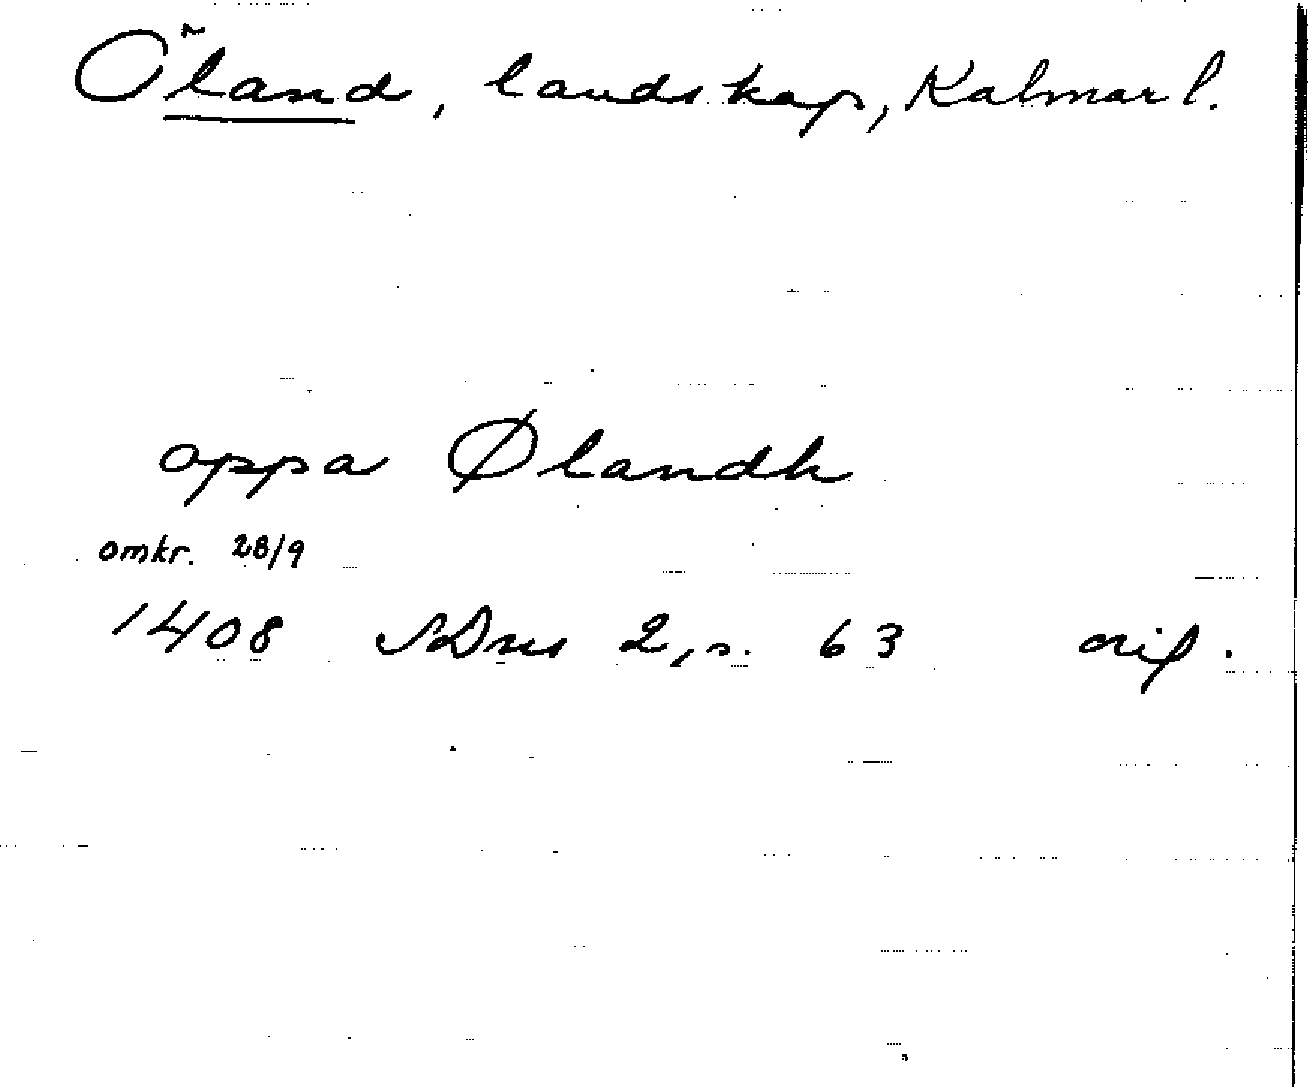 Öland, landskap, Kalmar l.
oppa Ølandh
omkr. 28/9
1408 SDns 2, s. 63 orig.